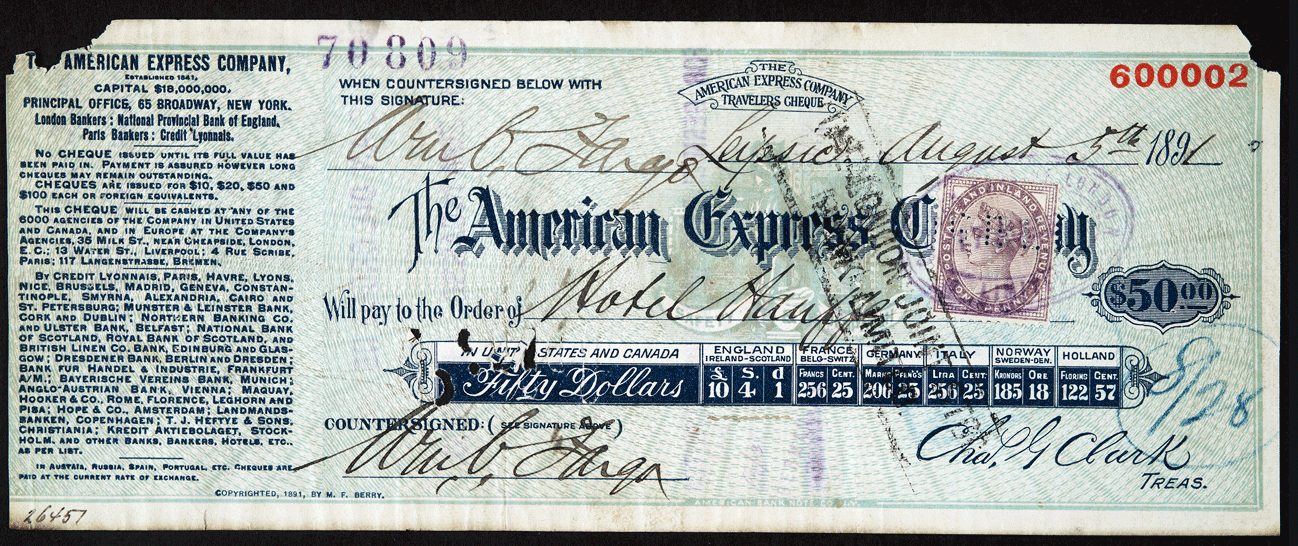 70809
600002
AMERICAN EXPRESS COMPANY,
ESTABLISHED 1841.
CAPITAL $18,000,000.
PRINCIPAL OFFICE, 65 BROADWAY, NEW YORK.
London Bankers: National Provincial Bank of England.
Paris Bankers: Credit Lyonnais.
NO CHEQUE ISSUED UNTIL ITS FULL VALUE HAS
BEEN PAID IN. PAYMENT IS ASSURED HOWEVER LONG
CHEQUES MAY REMAIN OUTSTANDING.
CHEQUES ARE ISSUED FOR $10, $20, $50 AND
$100 EACH OR FOREIGN EQUIVALENTS.
THIS CHEQUE WILL BE CASHED AT ANY OF THE
6000 AGENCIES OF THE COMPANY IN UNITED STATES
AND CANADA, AND IN EUROPE AT THE COMPANY'S
AGENCIES, 35 MILK ST., NEAR CHEAPSIDE, LONDON,
E. C.; 13 WATER ST., LIVERPOOL; 4 RUE SCRIBE,
PARIS; 117 LANGENSTRASSE, BREMEN.
BY CREDIT LYONNAIS, PARIS, HAVRE, LYONS,
NICE, BRUSSELS, MADRID, GENEVA, CONSTAN-
TINOPLE, SMYRNA, ALEXANDRIA, CAIRO AND
ST. PETERSBURG; MUNSTER & LEINSTER BANK,
CORK AND DUBLIN; NORTHERN BANKING CO.
AND ULSTER BANK, BELFAST; NATIONAL BANK
OF SCOTLAND, ROYAL BANK OF SCOTLAND, AND
BRITISH LINEN CO. BANK, EDINBURG AND GLAS-
GOW; DRESDENER BANK, BERLIN AND DRESDEN;
BANK FUR HANDEL & INDUSTRIE, FRANKFURT
A/M.; BAYERISCHE VEREINS BANK, MUNICH;
ANGLO-AUSTRIAN BANK, VIENNA; MAQUAY,
HOOKER & CO., ROME, FLORENCE, LEGHORN AND
PISA; HOPE & CO., AMSTERDAM; LANDMANDS-
BANKEN, COPENHAGEN; T. J. HEFTYE & SONS,
CHRISTIANIA; KREDIT AKTIEBOLAGET, STOCK-
HOLM, AND OTHER BANKS, BANKERS, HOTELS, ETC.,
AS PER LIST.
IN AUSTRIA, RUSSIA, SPAIN, PORTUGAL, ETC. CHEQUES ARE
PAID AT THE CURRENT RATE OF EXCHANGE.
COPYRIGHTED, 1891, BY M. F. BERRY.
26457
WHEN COUNTERSIGNED BELOW WITH
THIS SIGNATURE:
THE
AMERICAN EXPRESS COMPANY
TRAVELERS CHEQUE
Wm C Fargo Leipsic August 5th 1891
The American Express
POSTAGE AND INLAND REVENUE
LONDON
Will pay to the Order of Hotel Hauffe
$50.00
STATES AND CANADA
Fifty Dollars
ENGLAND
IRELAND-SCOTLAND
£ S. d
10 4 1
FRANCE
BELG-SWITZ
FRANCS CENT.
256 25
GERMANY
206 25
ITALY
LIRA CENT.
256 25
NORWAY
SWEDEN-DEN.
KRONORS ORE
185 18
HOLLAND
FLORINS CENT.
122 57
COUNTERSIGNED: (SEE SIGNATURE ABOVE)
Wm C Fargo
8/28
Chas. G Clark
TREAS.
AMERICAN BANK NOTE CO. N.Y.